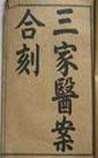 三家醫案
合刻